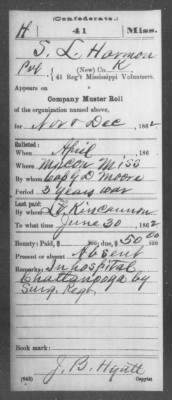 (Confederate.)
H 41 Miss.
S. L. Harmon
Pvt (New) Co. K
41 Reg't Mississippi Volunteers.
Appears on
Company Muster Roll
of the organization named above,
for Nov & Dec, 1862
Enlisted:
When April, 186
Where Macon Miss
By whom Capt D Moore
Period 3 years war
Last paid:
By whom Lt. Kincannon
To what time June 30 1862
Bounty: Paid, $ 100; due, $ 50 00/100
Present or absent Absent
Remarks: In hospital
Chattanooga by
Surg. Regt.
Book mark:
J. B. Hyatt
(642) Copyist.